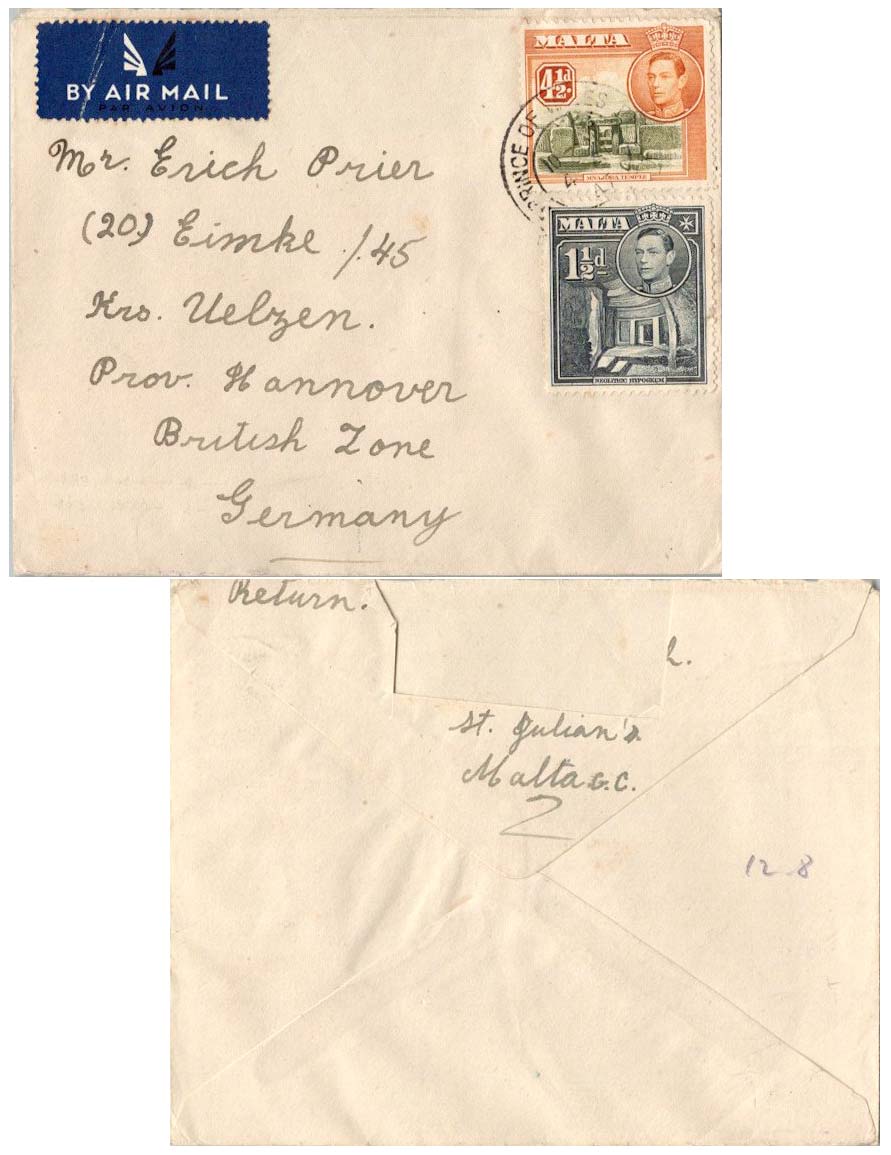 BY AIR MAIL
PAR AVION
MALTA
4½d.
MNAJDRA TEMPLE
PRINCE OF WALES
MALTA
1½d
NEOLITHIC HYPOGEUM
Mr. Erich Prier
(20) Eimke /.45
Krs. Uelzen.
Prov. Hannover
British Zone
Germany
Return.
h.
St. Julian's.
Malta G.C.
12 8